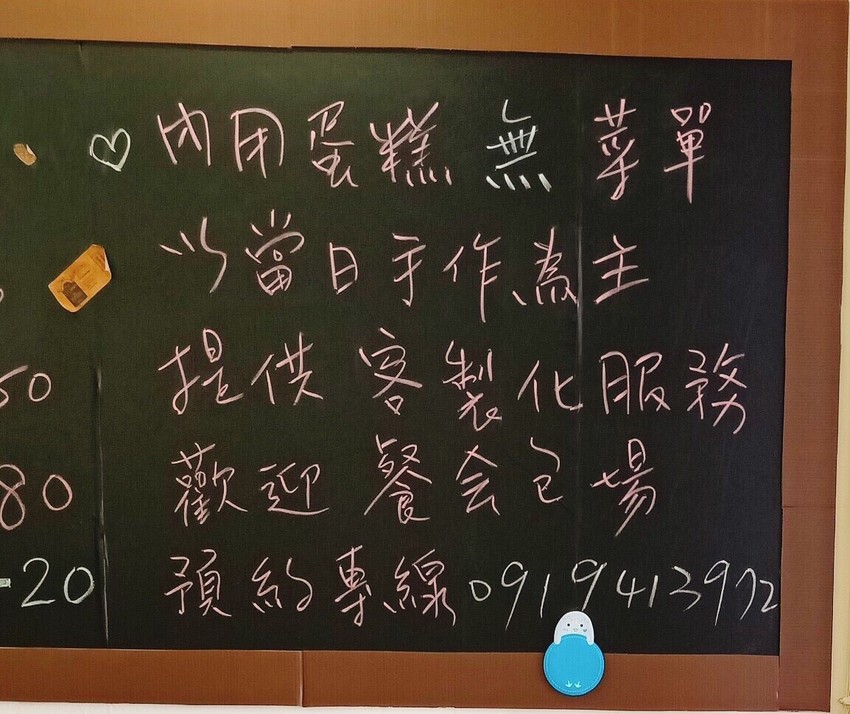 ♡ 內用蛋糕無菜單
以當日手作為主
提供客製化服務
50
歡迎餐会包場
80
預約專線0919413972
-20